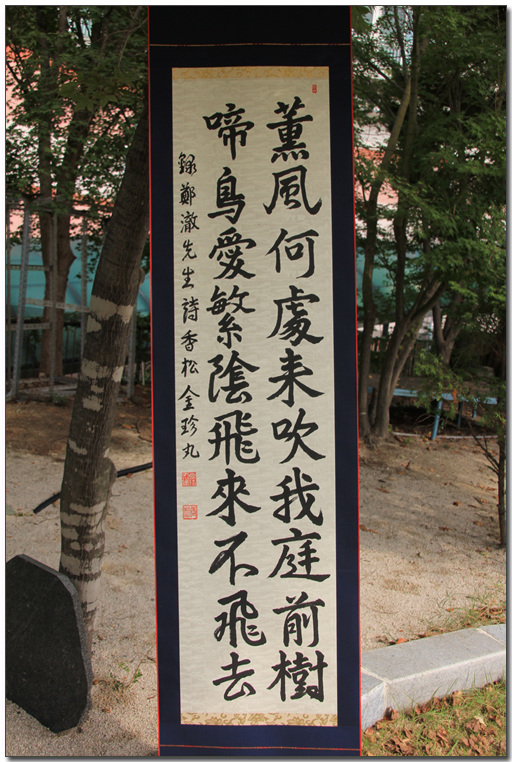 薰風何處来吹我庭前樹
啼鳥愛繁陰飛來不飛去
錄鄭澈先生詩香松金珍丸